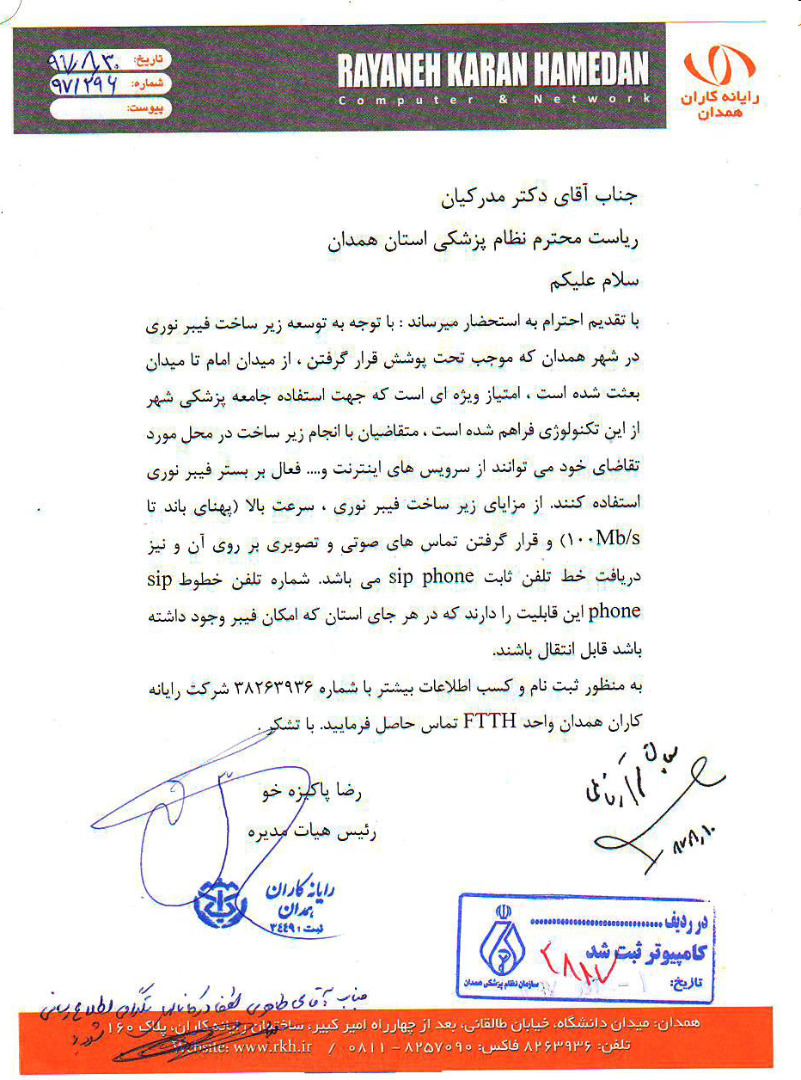 تاریخ: ۹۷/۸/۳۰
شماره: ۹۷/۲۹۶
پیوست:
RAYANEH KARAN HAMEDAN
Computer & Network
رایانه کاران
همدان
جناب آقای دکتر مدرکیان
ریاست محترم نظام پزشکی استان همدان
سلام علیکم
با تقدیم احترام به استحضار میرساند : با توجه به توسعه زیر ساخت فیبر نوری
در شهر همدان که موجب تحت پوشش قرار گرفتن ، از میدان امام تا میدان
بعثت شده است ، امتیاز ویژه ای است که جهت استفاده جامعه پزشکی شهر
از این تکنولوژی فراهم شده است ، متقاضیان با انجام زیر ساخت در محل مورد
تقاضای خود می توانند از سرویس های اینترنت و.... فعال بر بستر فیبر نوری
استفاده کنند. از مزایای زیر ساخت فیبر نوری ، سرعت بالا (پهنای باند تا
۱۰۰Mb/s) و قرار گرفتن تماس های صوتی و تصویری بر روی آن و نیز
دریافت خط تلفن ثابت sip phone می باشد. شماره تلفن خطوط sip
phone این قابلیت را دارند که در هر جای استان که امکان فیبر وجود داشته
باشد قابل انتقال باشند.
به منظور ثبت نام و کسب اطلاعات بیشتر با شماره ۳۸۲۶۳۹۳۶ شرکت رایانه
کاران همدان واحد FTTH تماس حاصل فرمایید. با تشکر .
رضا پاکیزه خو
رئیس هیات مدیره
رایانه کاران
همدان
ثبت: ۳۴۴۹
در ردیف ..............................
کامپیوتر ثبت شد
تاریخ:
سازمان نظام پزشکی همدان
جناب آقای طاهری لطفا در کانال تلگرام اطلاع رسانی
شود
همدان: میدان دانشگاه، خیابان طالقانی، بعد از چهارراه امیر کبیر، ساختمان رایانه کاران، پلاک ۱۶۰
تلفن: ۸۲۶۳۹۳۶ فاکس: ۸۲۵۷۰۹۰ - ۰۸۱۱ / Website: www.rkh.ir